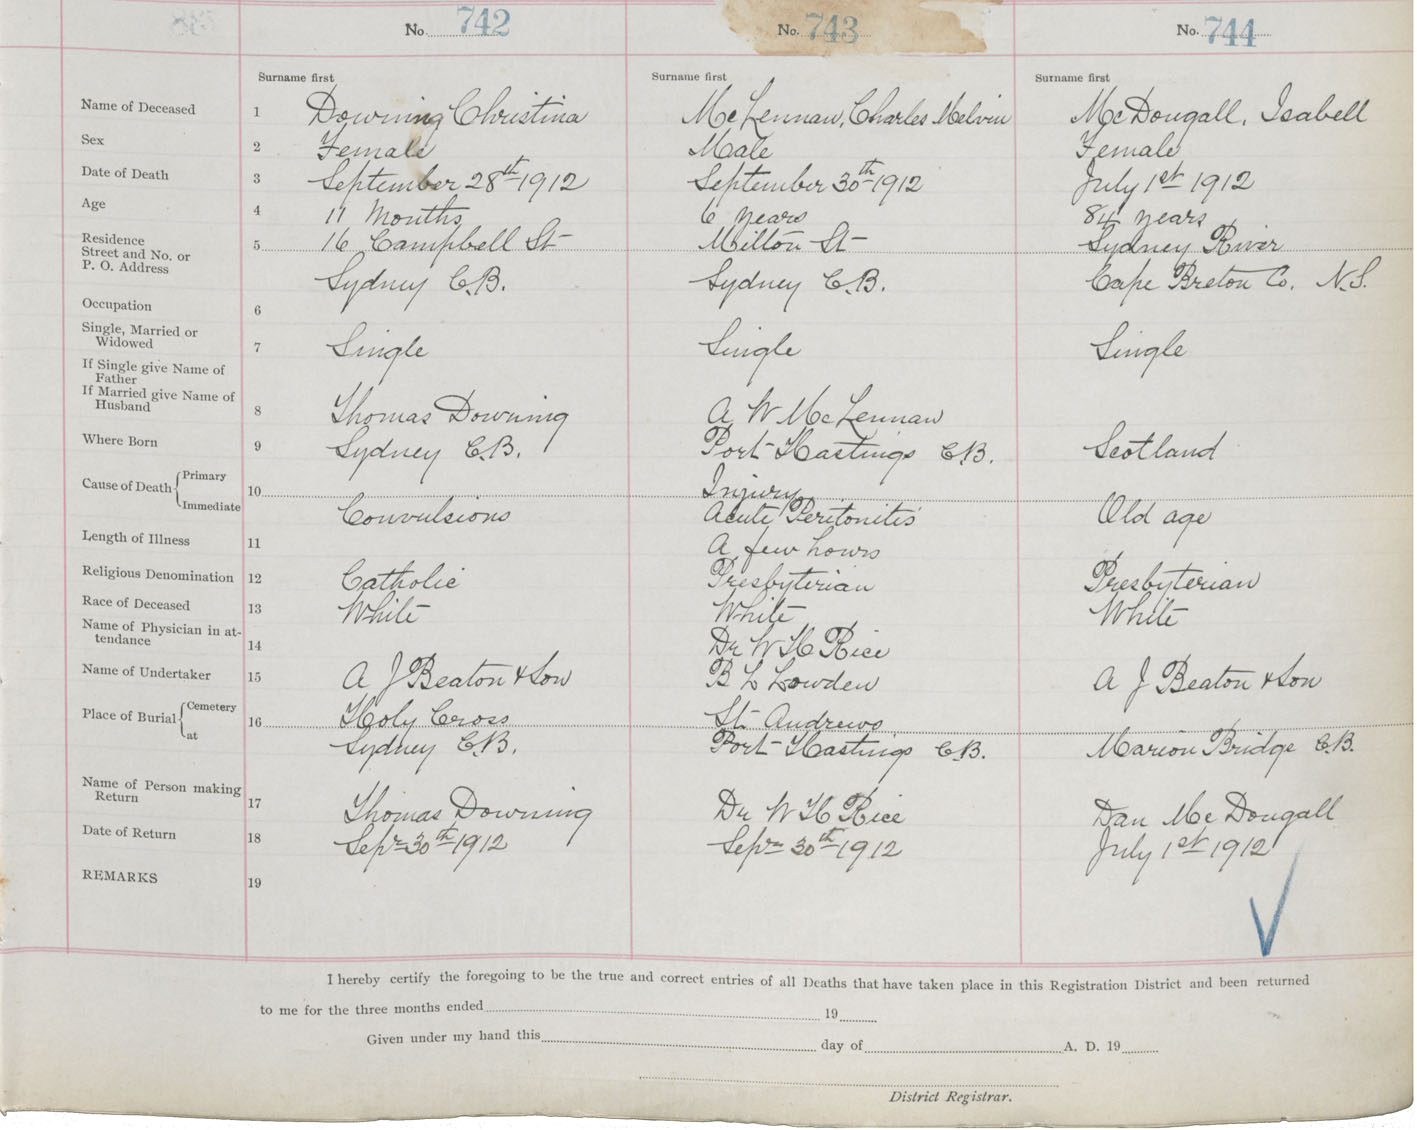 No. 742 No. 743 No. 744
Surname first Surname first Surname first
Name of Deceased 1 Downing Christina McLennan, Charles Melvin McDougall, Isabell
Sex 2 Female Male Female
Date of Death 3 September 28th 1912 September 30th 1912 July 1st 1912
Age 4 11 Months 6 years 84 years
Residence
Street and No. or 5 16 Campbell St Milton St Sydney River
P. O. Address
Sydney C.B. Sydney C.B. Cape Breton Co. N.S.
Occupation 6
Single, Married or
Widowed 7 Single Single Single
If Single give Name of
Father
If Married give Name of
Husband 8 Thomas Downing A W McLennan
Where Born 9 Sydney C.B. Port Hastings C.B. Scotland
Cause of Death Primary 10 Injury
Immediate Convulsions Acute Peritonitis Old age
Length of Illness 11 A few hours
Religious Denomination 12 Catholic Presbyterian Presbyterian
Race of Deceased 13 White White White
Name of Physician in at-
tendance 14 Dr W H Rice
Name of Undertaker 15 A J Beaton & Son B L Lowden A J Beaton & Son
Place of Burial Cemetery 16 Holy Cross St. Andrews
at Sydney C.B. Port Hastings C.B. Marion Bridge C.B.
Name of Person making
Return 17 Thomas Downing Dr W H Rice Dan McDougall
Date of Return 18 Sepr 30th 1912 Sepr 30th 1912 July 1st 1912
REMARKS 19
I hereby certify the foregoing to be the true and correct entries of all Deaths that have taken place in this Registration District and been returned
to me for the three months ended 19
Given under my hand this day of A. D. 19
District Registrar.